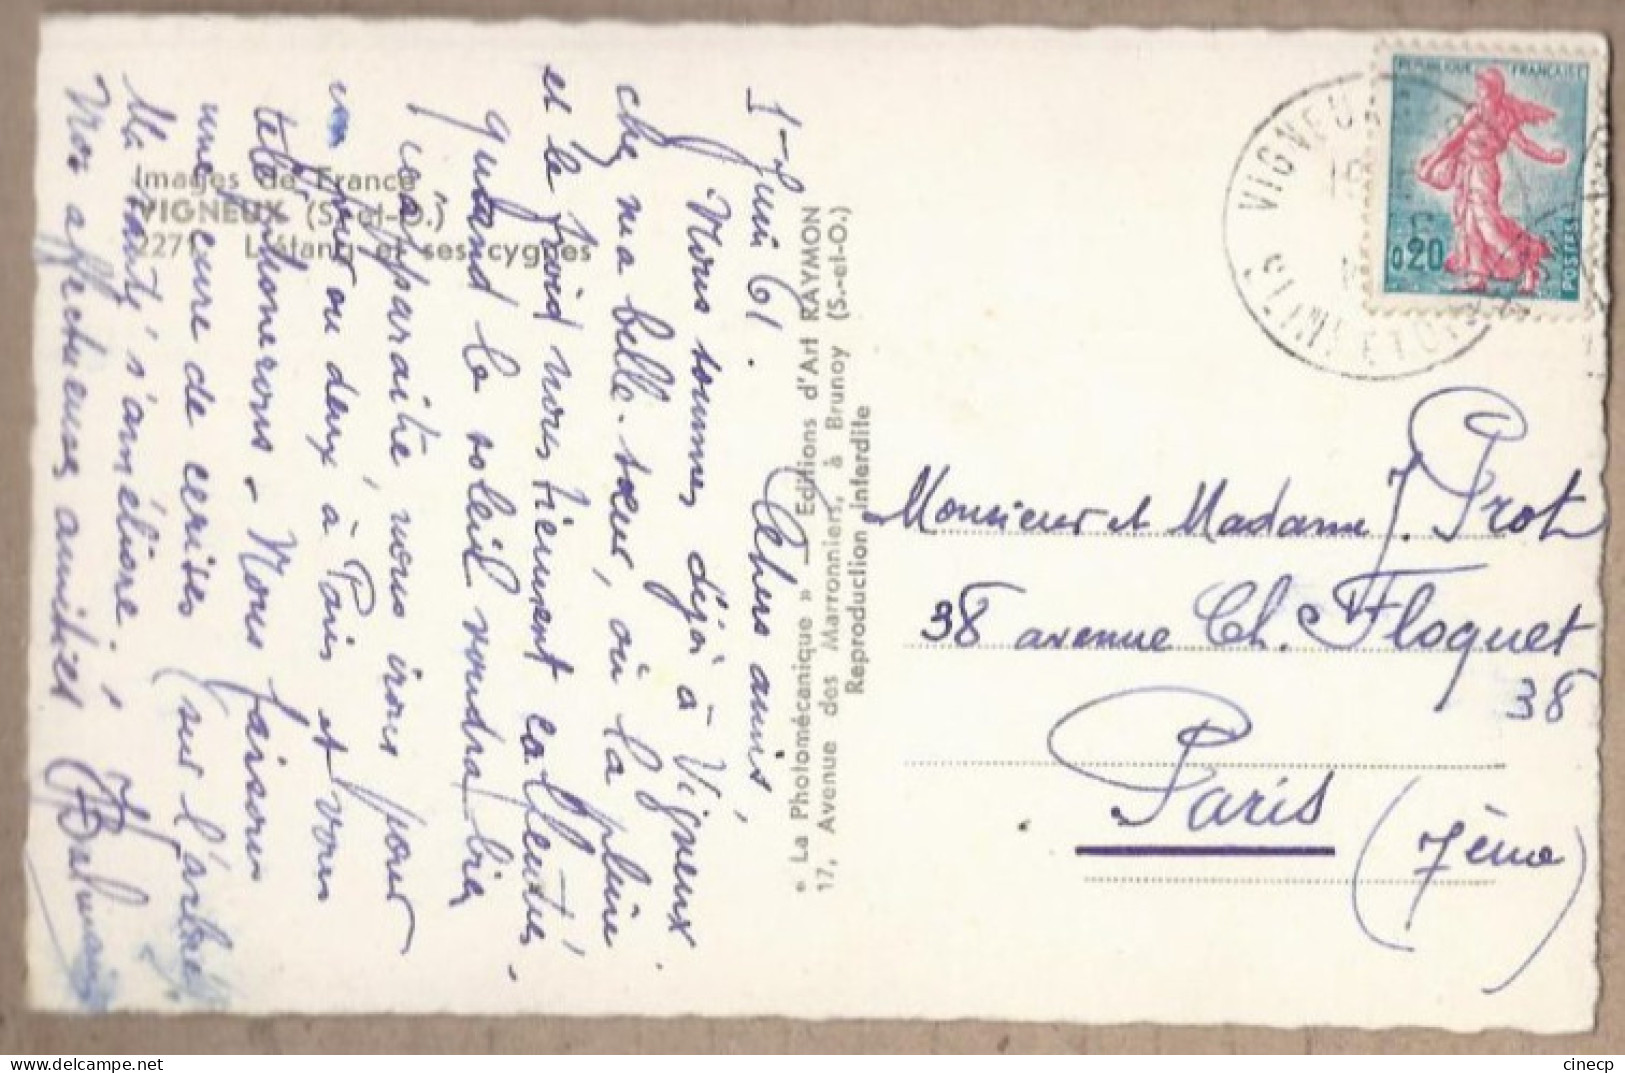 Images de France
VIGNEUX (S.-et-O.)
2271 L'étang et ses cygnes
1-Juin 61.
Chers amis,
Nous sommes déjà à Vigneux
chez ma belle-sœur, où la pluie
et le froid nous tiennent calfeutrés,
quand le soleil voudra bien
réapparaître, nous irons pour
un jour ou deux à Paris et vous
téléphonerons. Nous faisons
une cure de cerises (sur l'arbre)
Ma santé s'améliore.
Nos affectueuses amitiés
« La Photomécanique » — Editions d'Art RAYMON
17, Avenue des Marronniers, à Brunoy (S.-et-O.)
Reproduction interdite
REPUBLIQUE FRANÇAISE
0,20
POSTES
VIGNEU
Monsieur et Madame J. Prot
38 avenue Ch. Floquet
38
Paris
(7ème)
cinecp